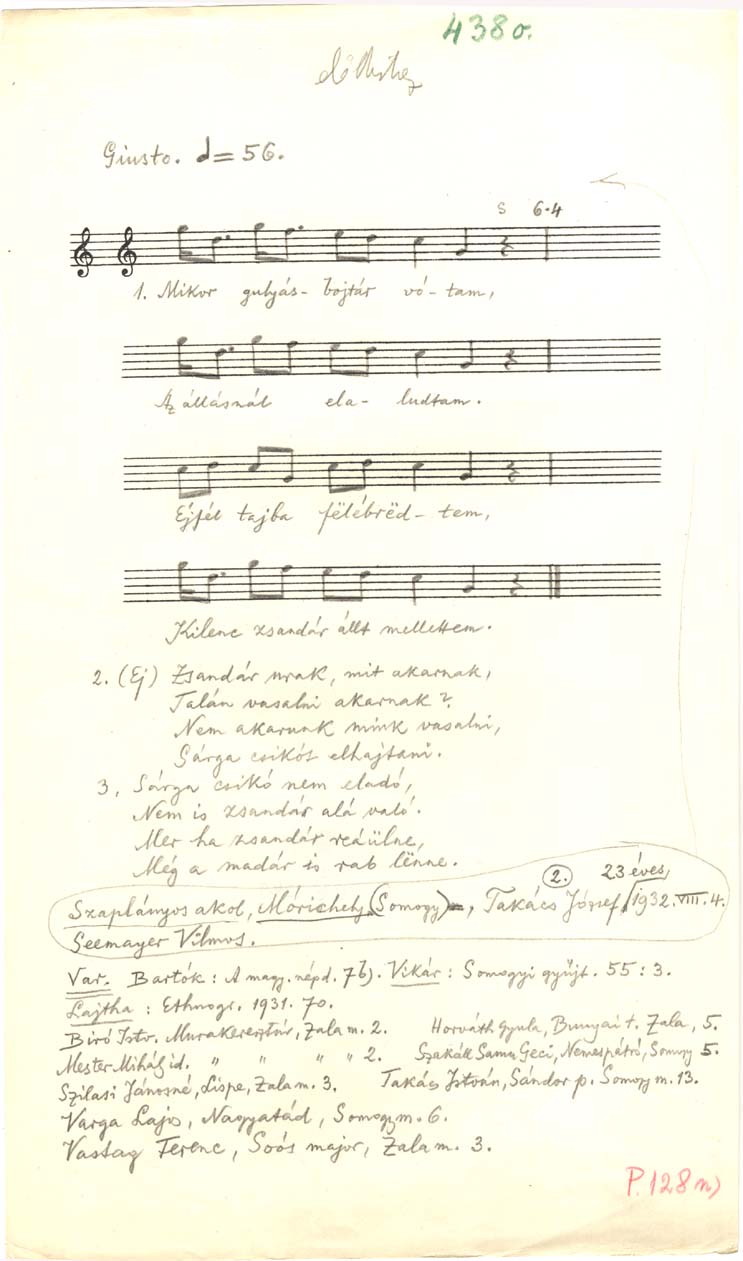 438o.
Giusto. = 56.
s 6-4
1. Mikor gulyás- bojtár vó- tam,
Az állásnál ela- ludtam.
Éjfél tajba fëlébrëd- tem,
Kilenc zsandár állt mellettem.
2. (Ej) Zsandár urak, mit akarnak,
Talán vasalni akarnak?
Nem akarunk mink vasalni,
Sárga csikót elhajtani.
3, Sárga csikó nem eladó,
Nem is zsandár alá való.
Mer ha zsandár reáülne,
Még a madár is rab lënne.
2. 23 éves,
Szaplányos akol, Mórichely (Somogy), Takács József, 1932. VIII. 4.
Seemayer Vilmos.
Var. Bartók: A magy. népd. 7b). Vikár: Somogyi gyűjt. 55: 3.
Lajtha: Ethnogr. 1931. 70.
Biró Istv. Murakeresztúr, Zala m. 2. Horváth Gyula, Bunyai t. Zala, 5.
Mester Mihály id. " " " " 2. Szakáll Samu Geci, Nemespátró, Somogy 5.
Szilasi Jánosné, Lispe, Zala m. 3. Takács István, Sándor p. Somogy m. 13.
Varga Lajos, Nagyatád, Somogy m. 6.
Vastag Ferenc, Soós major, Zala m. 3.
P. 128 n)